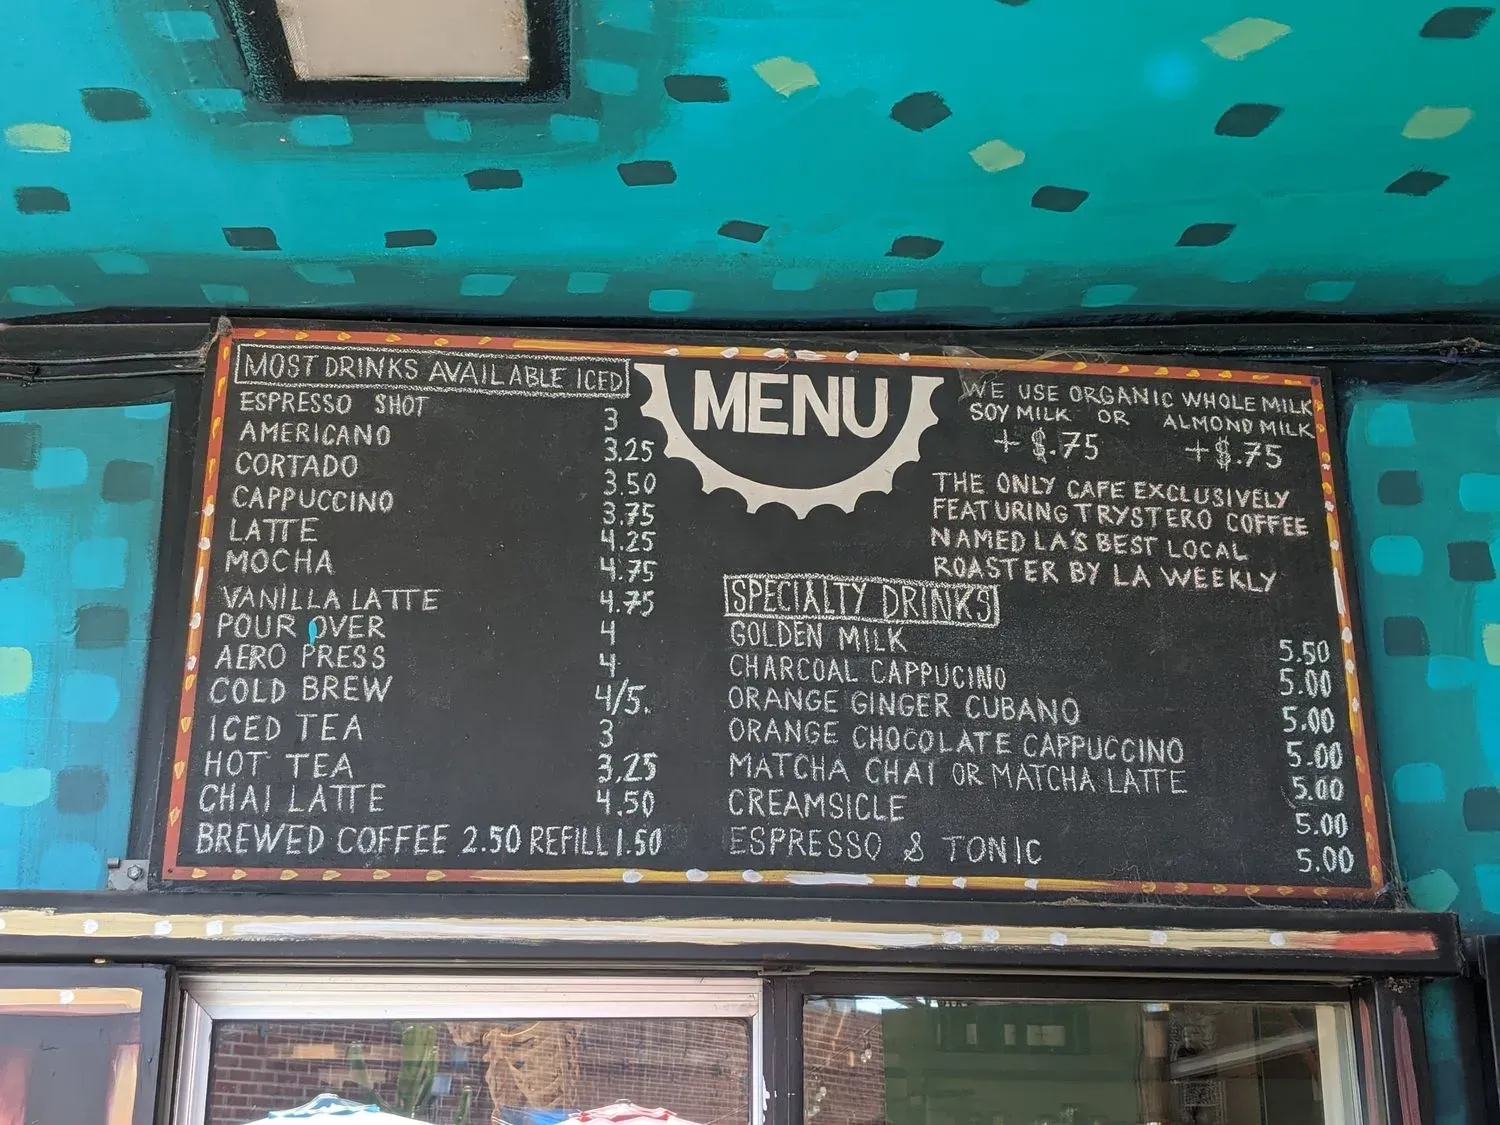 MOST DRINKS AVAILABLE ICED
ESPRESSO SHOT 3
AMERICANO 3.25
CORTADO 3.50
CAPPUCCINO 3.75
LATTE 4.25
MOCHA 4.75
VANILLA LATTE 4.75
POUR OVER 4
AERO PRESS 4
COLD BREW 4/5.
ICED TEA 3
HOT TEA 3.25
CHAI LATTE 4.50
BREWED COFFEE 2.50 REFILL 1.50
MENU
WE USE ORGANIC WHOLE MILK
SOY MILK OR ALMOND MILK
+$.75 +$.75
THE ONLY CAFE EXCLUSIVELY
FEATURING TRYSTERO COFFEE
NAMED LA'S BEST LOCAL
ROASTER BY LA WEEKLY
SPECIALTY DRINKS
GOLDEN MILK 5.50
CHARCOAL CAPPUCINO 5.00
ORANGE GINGER CUBANO 5.00
ORANGE CHOCOLATE CAPPUCCINO 5.00
MATCHA CHAI OR MATCHA LATTE 5.00
CREAMSICLE 5.00
ESPRESSO & TONIC 5.00